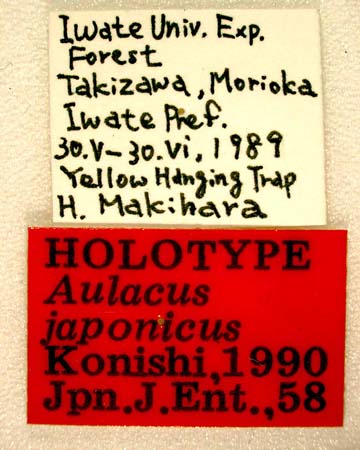 Iwate Univ. Exp.
Forest
Takizawa, Morioka
Iwate Pref.
30.V-30.vi, 1989
Yellow Hanging Trap
H. Makihara
HOLOTYPE
Aulacus
japonicus
Konishi,1990
Jpn.J.Ent.,58